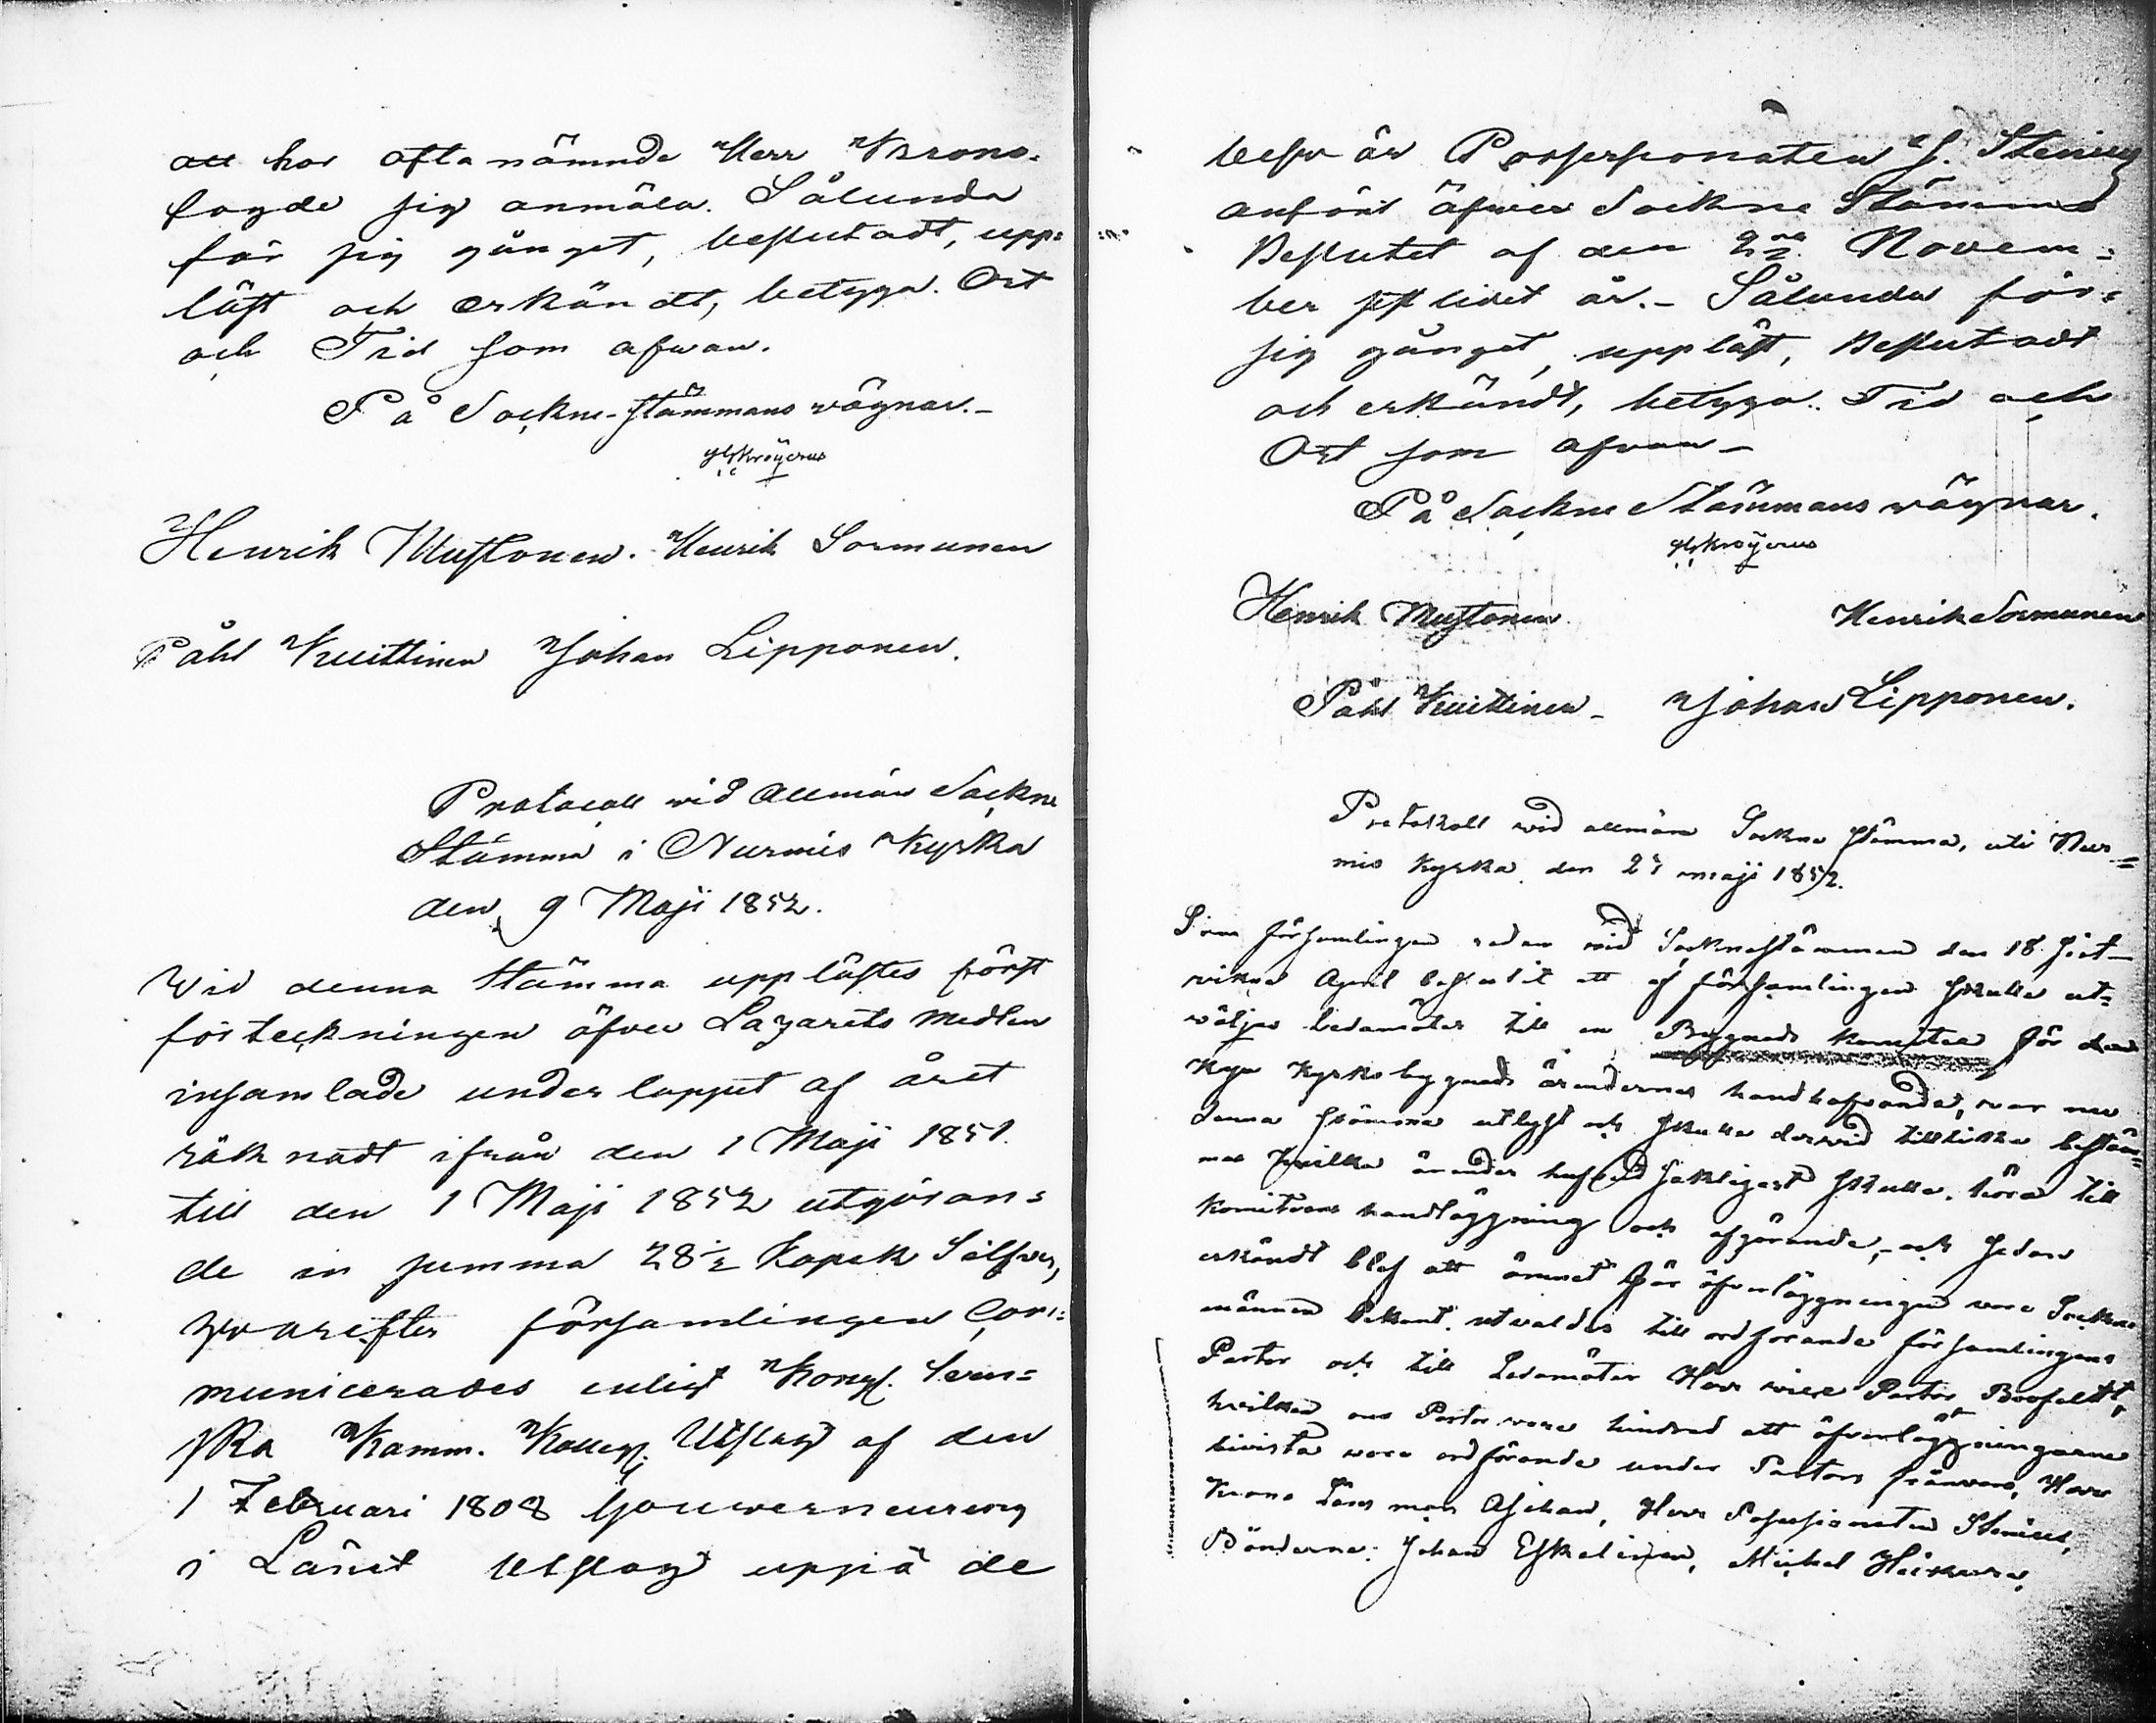 att hos ofta nämnde Herr Krono-
fogde sig anmäla. Sålunda
för sig gånget, beslutadt, upp-
läst och erkändt, betyga. Ort
och Tid som ofwan.
På Sockne-stämmans vägnar.-
Henrik Mustonen. Henrik Sormunen
Påhl Kuittinen Johan Lipponen.
Protocoll wid Allmän Sockne
Stämma i Nurmis Kyrka
den 9 Maji 1852.
Wid denna Stämma upplästes först
förteckningen öfver Lazaretts medlen
insamlade under loppet af året
räknadt ifrån den 1 Maji 1851.
till den 1 Maji 1852 utgöran=
de in summa 28½ Kopek Silfver,
hvarefter församlingen Com=
municerades enligt Kongl. Sven=
ska Kamm. Colleg. Utslag af den
1 Februari 1808 Gouverneurens
i Länet Utslag uppå de
besvär Possessionaten J. Stenius
anfört öfwer Sockne Stämmo
Beslutet af den 2ne Novem=
ber sistlidet år.- Sålunda för=
sig gånget, uppläst, Beslutadt
och erkändt, betyga. Tid och
Ort som ofvan -
På Sockne Stämmans vägnar.
Henrik Mustonen Henrik Sormunen
Påhl Kuittinen - Johan Lipponen.
Protokoll wid allmän Sockne stämma, uti Nur=
mis Kyrka den 23 maji 1852.
Som församlingen redan wid Socknestämman den 18 sist-
vikne April beslutit att af församlingen skulle ut=
väljas ledamöter till en Byggnads komitee för den
Nya Kyrkobyggnads ärendernas handhafvande, var nu
denna stämma utlyst och skulle dervid tillika bestäm=
mas hvilka ärender hufvudsakligast skulle höra till
Komiteens handläggning och afgörande, - och sedan
erkändt blef att ämnet för öfverläggningen vore Sockne
männen bekant, utvaldes till ordförande församlingens
Pastor och till Ledamöter Herr vice Pastor Boofeldt,
hvilken om Pastor vore hindrad att öfverläggningarne
bivista vore ordförande under Pastors frånvaro, Herr
Krono Läns man Ashan, Herr Possessionaten Stenius,
Bönderne: Johan Eskelinen, Michel Heikura,